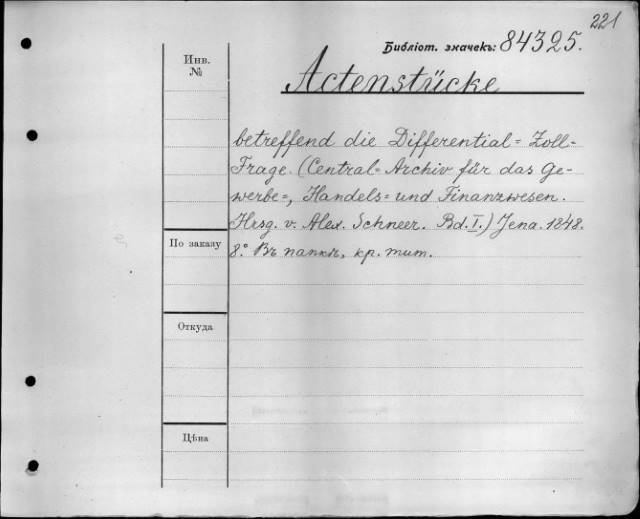 221
Библіот. значекъ: 84325.
Инв.
№
Actenstücke
betreffend die Differential=Zoll=
Frage. (Central=Archiv für das Ge-
werbe=, Handels= und Finanzwesen.
Hrsg. v. Alex. Schneer. Bd. I.) Jena. 1848.
По заказу
8.° Въ папкѣ, кр. тит.
Откуда
Цѣна